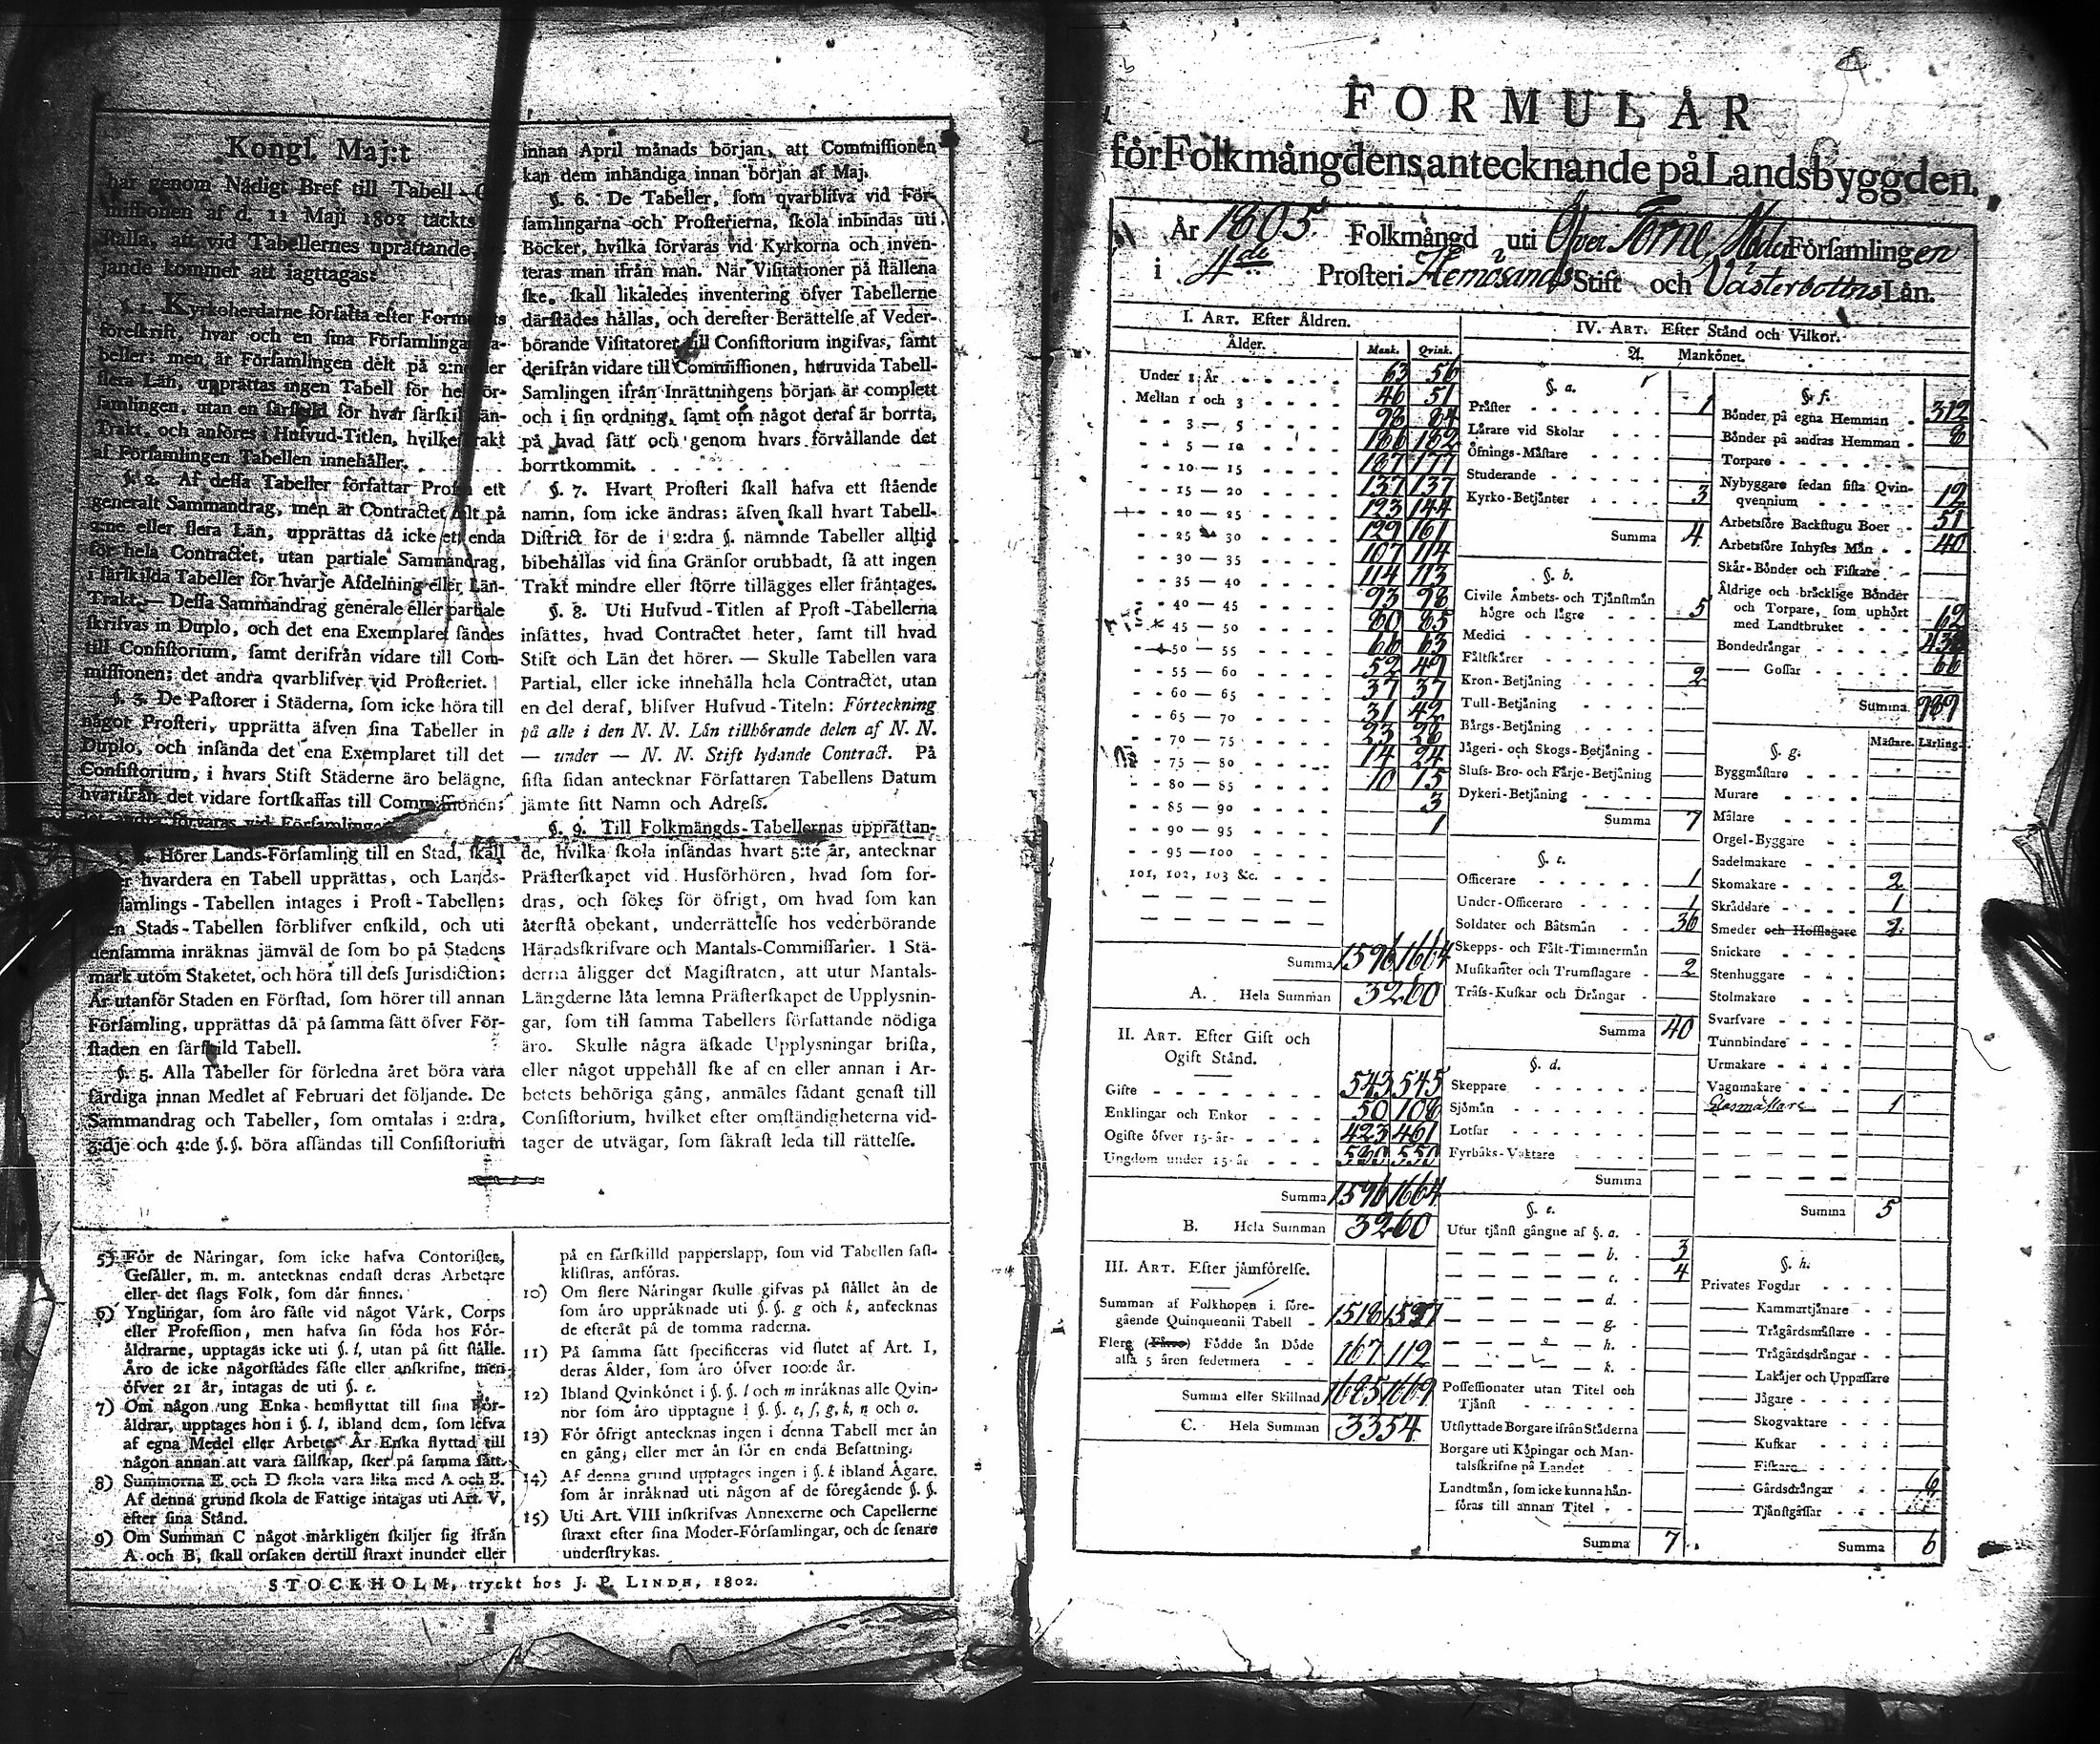 Kongl. Maj:t
har genom Nådigt Bref till Tabell-
missionen af d. 11 Maji 1802 täckts
ställa, att vid Tabellernes uprättande,
jande kommer att iagttagas:
§. 1. Kyrkoherdarne författa efter
föreskrift, hvar och en sina Församlingar
beller; men är Församlingen delt på
flera Län, upprättas ingen Tabell för
samlingen, utan en särskild för hvar särskilt
Trakt, och anföres i Hufvud-Titlen, hvilken Trakt
af Församlingen Tabellen innehåller.
§. 2. Af dessa Tabeller författar Prosten ett
generalt Sammandrag, men är Contractet delt på
2:ne eller flera Län, upprättas då icke ett enda
för hela Contractet, utan partiale Sammandrag,
i särskilda Tabeller för hvarje Afdelning eller Län-
Trakt. — Dessa Sammandrag generale eller partiale
skrifvas in Duplo, och det ena Exemplaret sändes
till Consistorium, samt derifrån vidare till Com-
missionen; det andra qvarblifver vid Prosteriet.
§. 3. De Pastorer i Städerna, som icke höra till
något Prosteri, upprätta äfven sina Tabeller in
Duplo, och insända det ena Exemplaret till det
Consistorium, i hvars Stift Städerne äro belägne,
hvarifrån det vidare fortskaffas till Commissionen;
Hörer Lands-Församling till en Stad, skall
hvardera en Tabell upprättas, och Lands-
samlings-Tabellen intages i Prost-Tabellen;
men Stads-Tabellen förblifver enskild, och uti
densamma inräknas jämväl de som bo på Stadens
mark utom Staketet, och höra till dess Jurisdiction;
Är utanför Staden en Förstad, som hörer till annan
Församling, upprättas då på samma sätt öfver För-
staden en särskild Tabell.
§. 5. Alla Tabeller för förledna året böra vara
färdiga innan Medlet af Februari det följande. De
Sammandrag och Tabeller, som omtalas i 2:dra,
3:dje och 4:de §.§. böra afsändas till Consistorium
innan April månads början, att Commissionen
kan dem inhändiga innan början af Maj.
§. 6. De Tabeller, som qvarblifva vid För-
samlingarna och Prosterierna, skola inbindas uti
Böcker, hvilka förvaras vid Kyrkorna och inven-
teras man ifrån man. När Visitationer på ställena
ske, skall likaledes inventering öfver Tabellerne
därstädes hållas, och derefter Berättelse af Veder-
börande Visitatorer till Consistorium ingifvas, samt
derifrån vidare till Commissionen, huruvida Tabell-
Samlingen ifrån Inrättningens början är complett
och i sin ordning, samt om något deraf är borrta,
på hvad sätt och genom hvars förvållande det
borrtkommit.
§. 7. Hvart Prosteri skall hafva ett stående
namn, som icke ändras; äfven skall hvart Tabell-
District för de i 2:dra §. nämnde Tabeller alltid
bibehållas vid sina Gränsor orubbadt, så att ingen
Trakt mindre eller större tillägges eller fråntages.
§. 8. Uti Hufvud-Titlen af Prost-Tabellerna
insättes, hvad Contractet heter, samt till hvad
Stift och Län det hörer. — Skulle Tabellen vara
Partial, eller icke innehålla hela Contractet, utan
en del deraf, blifver Hufvud-Titeln: Förteckning
på alle i den N. N. Län tillhörande delen af N. N.
— under — N. N. Stift lydande Contract. På
sista sidan antecknar Författaren Tabellens Datum
jämte sitt Namn och Adress.
§. 9. Till Folkmängds-Tabellernas upprättan-
de, hvilka skola insändas hvart 5:te år, antecknar
Prästerskapet vid Husförhören, hvad som for-
dras, och sökes för öfrigt, om hvad som kan
återstå obekant, underrättelse hos vederbörande
Häradsskrifvare och Mantals-Commissarier. I Stä-
derna åligger det Magistraten, att utur Mantals-
Längderne låta lemna Prästerskapet de Upplysnin-
gar, som till samma Tabellers författande nödiga
äro. Skulle några äskade Upplysningar brista,
eller något uppehåll ske af en eller annan i Ar-
betets behöriga gång, anmäles sådant genast till
Consistorium, hvilket efter omständigheterna vid-
tager de utvägar, som säkrast leda till rättelse.
5) För de Näringar, som icke hafva Contorister,
Gesäller, m. m. antecknas endast deras Arbetare
eller det slags Folk, som där finnes.
6) Ynglingar, som äro fäste vid något Värk, Corps
eller Profession, men hafva sin föda hos För-
äldrarne, upptagas icke uti §. l, utan på sitt ställe.
Äro de icke någorstädes fäste eller anskrifne, men
öfver 21 år, intagas de uti §. e.
7) Om någon ung Enka hemflyttat till sina För-
äldrar, upptages hon i §. l, ibland dem, som lefva
af egna Medel eller Arbete. Är Enka flyttad till
någon annan att vara sällskap, sker på samma sätt.
8) Summorna E och D skola vara lika med A och B.
Af denna grund skola de Fattige intagas uti Art. V,
efter sina Stånd.
9) Om Summan C något märkligen skiljer sig ifrån
A och B, skall orsaken dertill straxt inunder eller
på en särskilld papperslapp, som vid Tabellen fast-
klistras, anföras.
10) Om flere Näringar skulle gifvas på stället än de
som äro uppräknade uti §. §. g och k, antecknas
de efteråt på de tomma raderna.
11) På samma sätt specificeras vid slutet af Art. I,
deras Ålder, som äro öfver 100:de år.
12) Ibland Qvinkönet i §. §. l och m inräknas alle Qvin-
nor som äro upptagne i §. §. e, f, g, k, n och o.
13) För öfrigt antecknas ingen i denna Tabell mer än
en gång, eller mer än för en enda Befattning.
14) Af denna grund upptages ingen i §. k ibland Ägare,
som är inräknad uti någon af de föregående §. §.
15) Uti Art. VIII inskrifvas Annexerne och Capellerne
straxt efter sina Moder-Församlingar, och de senare
understrykas.
STOCKHOLM, tryckt hos J. P. LINDH, 1802.
FORMULÄR
för Folkmängdens antecknande på Landsbyggden.
År 1805 Folkmängd uti Öfver Torne, Moder Församlingen
i 4de Prosteri Hernösands Stift och Västerbottns Län.
I. ART. Efter Åldren.
Ålder. Mank. Qvink.
Under 1 År 63 56
Mellan 1 och 3 46 51
3 — 5 98 84
5 — 10 186 182
10 — 15 187 177
15 — 20 137 137
20 — 25 123 144
25 — 30 129 161
30 — 35 107 114
35 — 40 114 113
40 — 45 93 98
45 — 50 80 85
50 — 55 66 63
55 — 60 52 49
60 — 65 37 37
65 — 70 31 42
70 — 75 23 28
75 — 80 14 24
80 — 85 10 15
85 — 90 3
90 — 95 1
95 — 100
101, 102, 103 &c.
Summa 1596 1664
A. Hela Summan 3260
II. ART. Efter Gift och
Ogift Stånd.
Gifte 543 545
Enklingar och Enkor 50 108
Ogifte öfver 15-år 423 461
Ungdom under 15-år 580 550
Summa 1596 1664
B. Hela Summan 3260
III. ART. Efter jämförelse.
Summan af Folkhopen i före-
gående Quinquennii Tabell 1518 1557
Flere (Färre) Födde än Döde
alla 5 åren sedermera 167 112
Summa eller Skillnad 1685 1669
C. Hela Summan 3354
IV. ART. Efter Stånd och Vilkor.
A. Mankönet.
§. a.
Präster 1
Lärare vid Skolar
Öfnings-Mästare
Studerande
Kyrko-Betjänter 3
Summa 4
§. b.
Civile Ämbets- och Tjänstmän
högre och lägre 5
Medici
Fältskärer
Kron-Betjäning 2
Tull-Betjäning
Bärgs-Betjäning
Jägeri- och Skogs-Betjäning
Sluss- Bro- och Färje-Betjäning
Dykeri-Betjäning
Summa 7
§. c.
Officerare 1
Under-Officerare 1
Soldater och Båtsmän 36
Skepps- och Fält-Timmermän
Musikanter och Trumslagare 2
Träss-Kuskar och Drängar
Summa 40
§. d.
Skeppare
Sjömän
Lotsar
Fyrbåks-Vaktare
Summa
§. e.
Utur tjänst gångne af §. a.
b. 3
c. 4
d.
g.
h.
k.
Possessionater utan Titel och
Tjänst
Utflyttade Borgare ifrån Städerna
Borgare uti Köpingar och Man-
talsskrifne på Landet
Landtmän, som icke kunna hän-
föras till annan Titel
Summa 7
§. f.
Bönder på egna Hemman 312
Bönder på andras Hemman 8
Torpare
Nybyggare sedan sista Qvin-
qvennium 12
Arbetsföre Backstugu Boer 51
Arbetsföre Inhyses Män 40
Skär-Bönder och Fiskare
Äldrige och bräcklige Bönder
och Torpare, som uphört
med Landtbruket 62
Bondedrängar
— Gossar 66
Summa
§. g. Mästare. Lärling.
Byggmästare
Murare
Målare
Orgel-Byggare
Sadelmakare
Skomakare 2
Skräddare 1
Smeder och Hofslagare
Snickare
Stenhuggare
Stolmakare
Svarfvare
Tunnbindare
Urmakare
Vagnmakare
Glasmästare 1
Summa 5
§. h.
Privates Fogdar
— Kammartjänare
— Trägårdsmästare
— Trägårdsdrängar
— Lakäjer och Uppassare
— Jägare
— Skogvaktare
— Kuskar
— Fiskare
— Gårdsdrängar 6
— Tjänstgässar
Summa 6